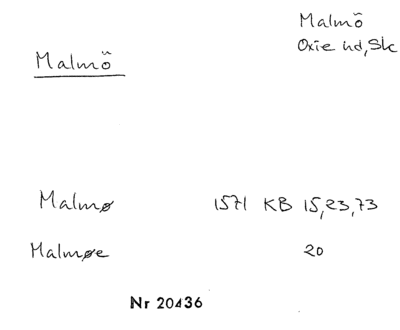 Malmö
Oxie hd, Sk
Malmö
Malmø 1571 KB 15, 23, 73
Malmøe 20
Nr 20436